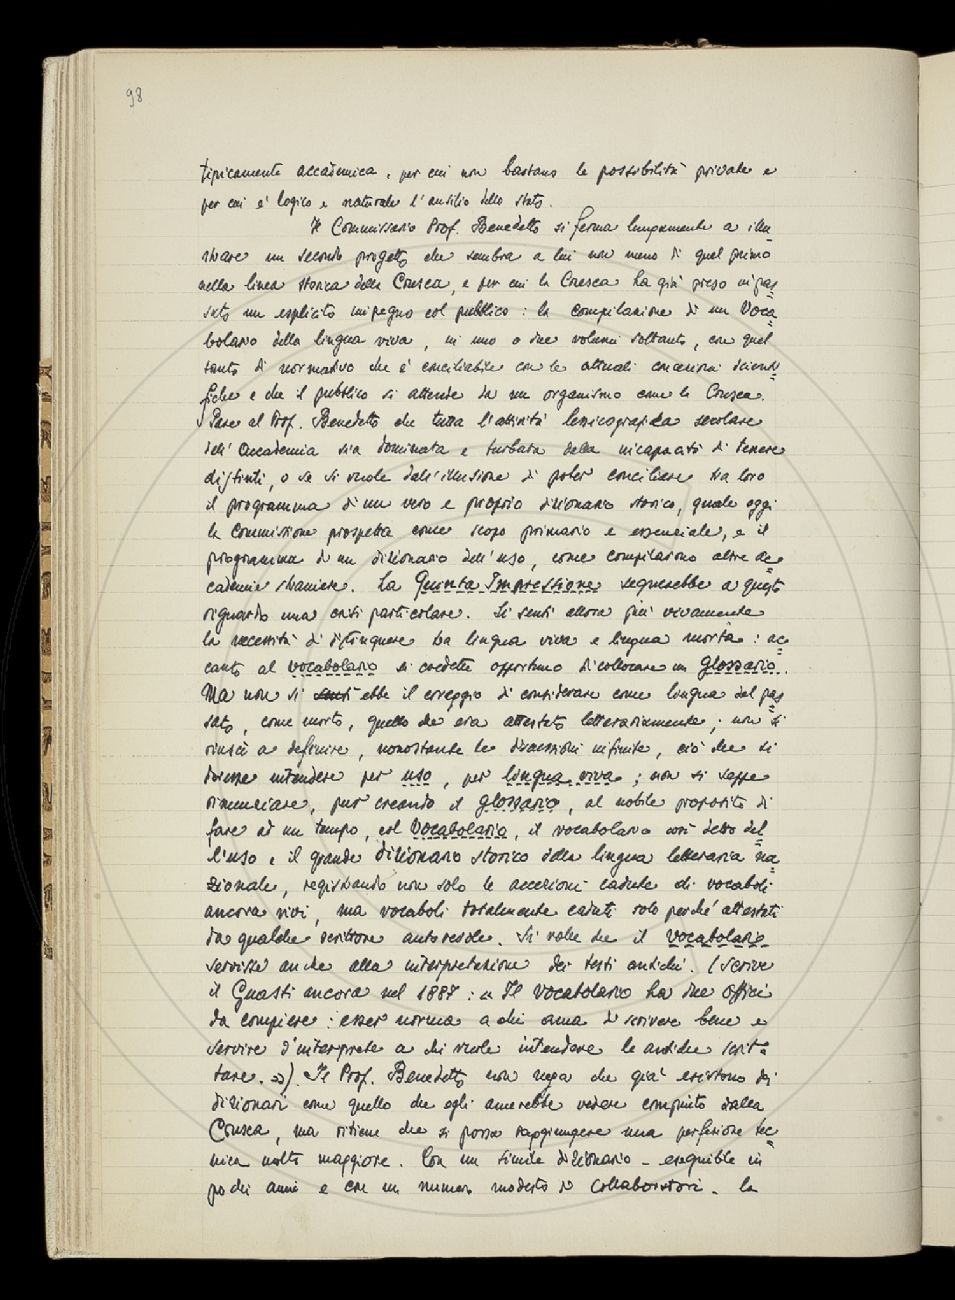 98
tipicamente accademica, per cui non bastano le possibilità private e
per cui è logico e naturale l'ausilio dello Stato.
Il Commissario Prof. Benedetto si ferma lungamente a illu=
strare un secondo progetto che sembra a lui non meno di quel primo
nella linea storica della Crusca, e per cui la Crusca ha già preso in pas=
sato un esplicito impegno col pubblico: la compilazione di un Voca=
bolario della lingua viva, in uno o due volumi soltanto, con quel
tanto di normativo che è conciliabile con le attuali concezioni scienti=
fiche e che il pubblico si attende da un organismo come la Crusca.
Pare al Prof. Benedetto che tutta l'attività lessicografica secolare
dell'Accademia sia dominata e turbata dalla incapacità di tenere
distinti, o se si vuole dall'illusione di poter conciliare tra loro
il programma di un vero e proprio dizionario storico, quale oggi
la Commissione prospetta come scopo primario e essenziale, e il
programma di un dizionario dell'uso, come compilarono altre Ac=
cademie straniere. La Quinta Impressione segnerebbe a questo
riguardo una crisi particolare. Si sentì allora più vivamente
la necessità di distinguere tra lingua viva e lingua morta: ac=
canto al vocabolario si credette opportuno di collocare un glossario.
Ma non si ebbe il coraggio di considerare come lingua del pas=
sato, come morto, quello che era attestato letterariamente; non si
riuscì a definire, nonostante le discussioni infinite, ciò che si
dovesse intendere per uso, per lingua viva; non si seppe
rinunciare, pur creando il glossario, al nobile proposito di
fare ad un tempo, col Vocabolario, il vocabolario così detto del=
l'uso e il grande dizionario storico della lingua letteraria na=
zionale, registrando non solo le accezioni cadute di vocaboli
ancora vivi, ma vocaboli totalmente caduti solo perché attestati
da qualche scrittore autorevole. Si volle che il vocabolario
servisse anche alla interpretazione dei testi antichi. (Scrive
il Guasti ancora nel 1887: « Il vocabolario ha due offici
da compiere: esser norma a chi ama di scrivere bene e
servire d'interprete a chi vuole intendere le antiche scrit=
ture. »). Il Prof. Benedetto non nega che già esistono dei
dizionari come quello che egli amerebbe vedere compiuto dalla
Crusca, ma ritiene che si possa raggiungere una perfezione tec=
nica molto maggiore. Con un simile dizionario - eseguibile in
pochi anni e con un numero modesto di collaboratori - la